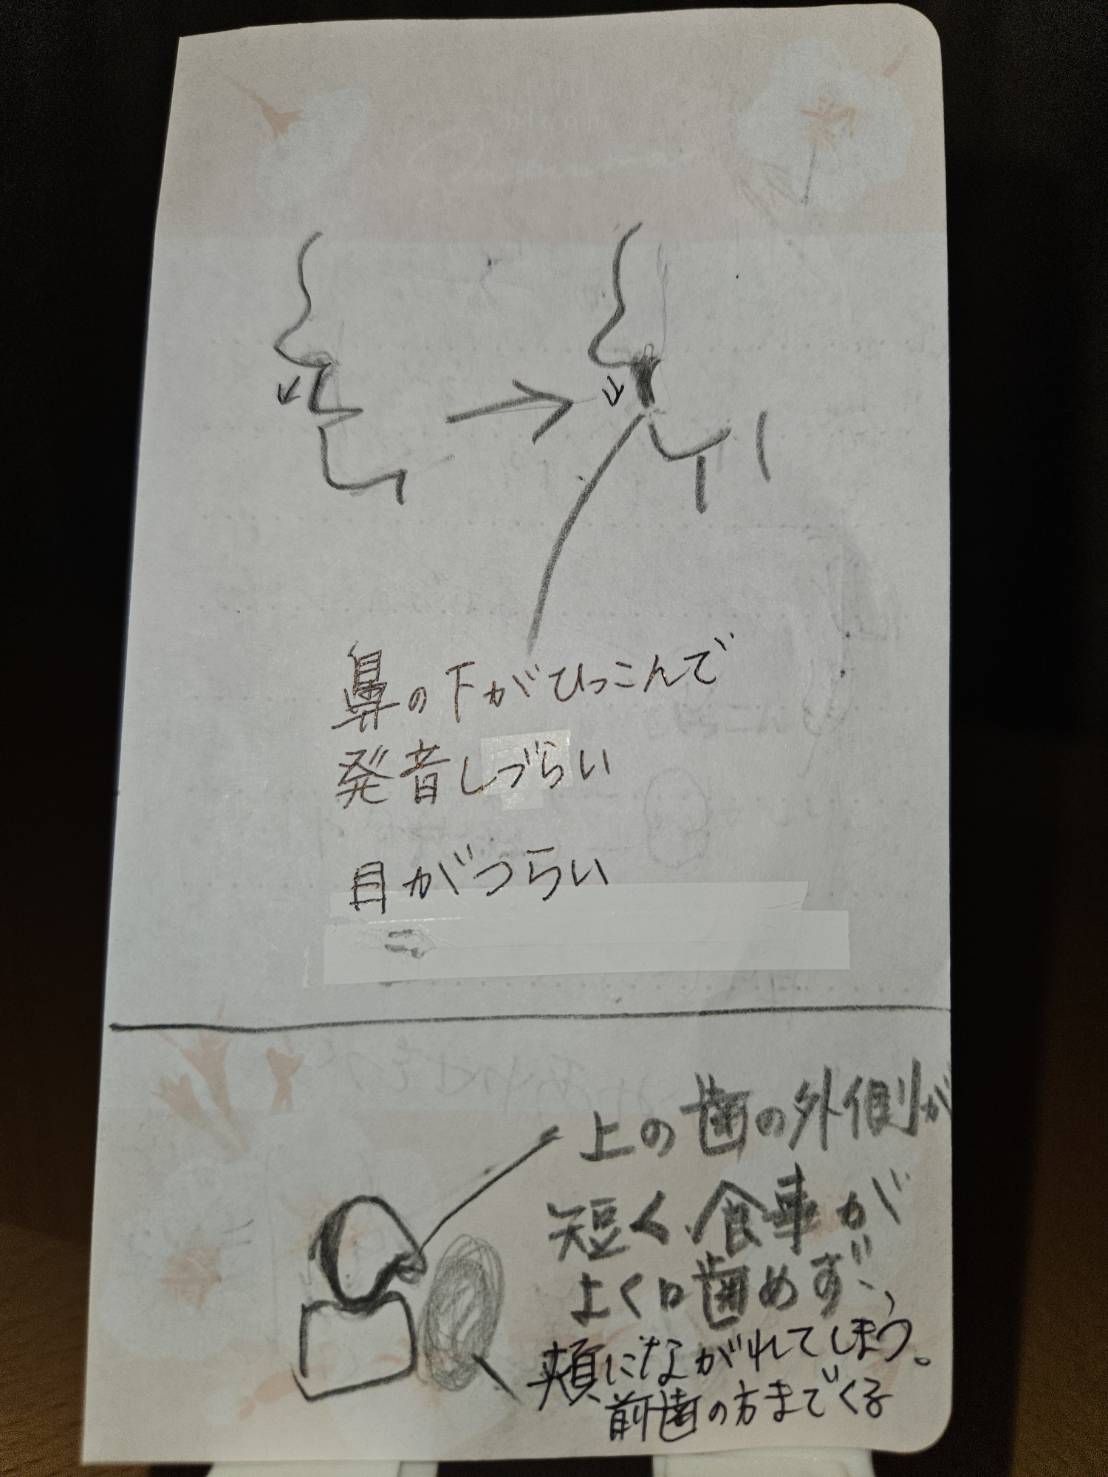 鼻の下がひっこんで
発音しづらい
目がつらい
上の歯の外側が
短く、食事が
よく口歯めず、
頬にながれてしまう。
前歯の方までくる